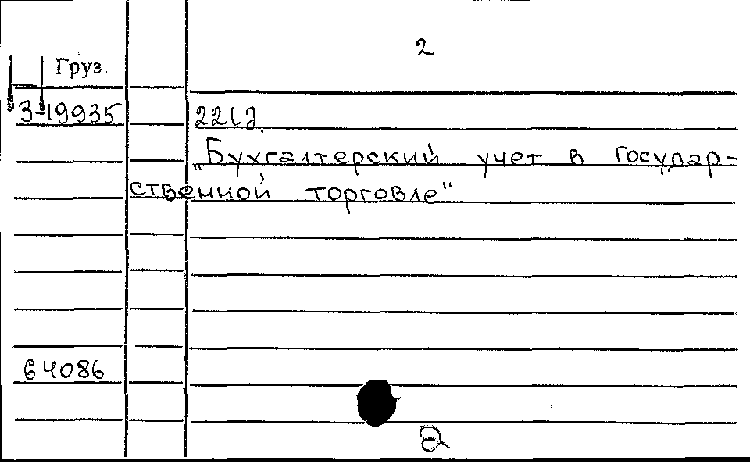 2
Груз.
3-19935
221 с.
"Бухгалтерский учет в государ-
ственной торговле"
64086
2